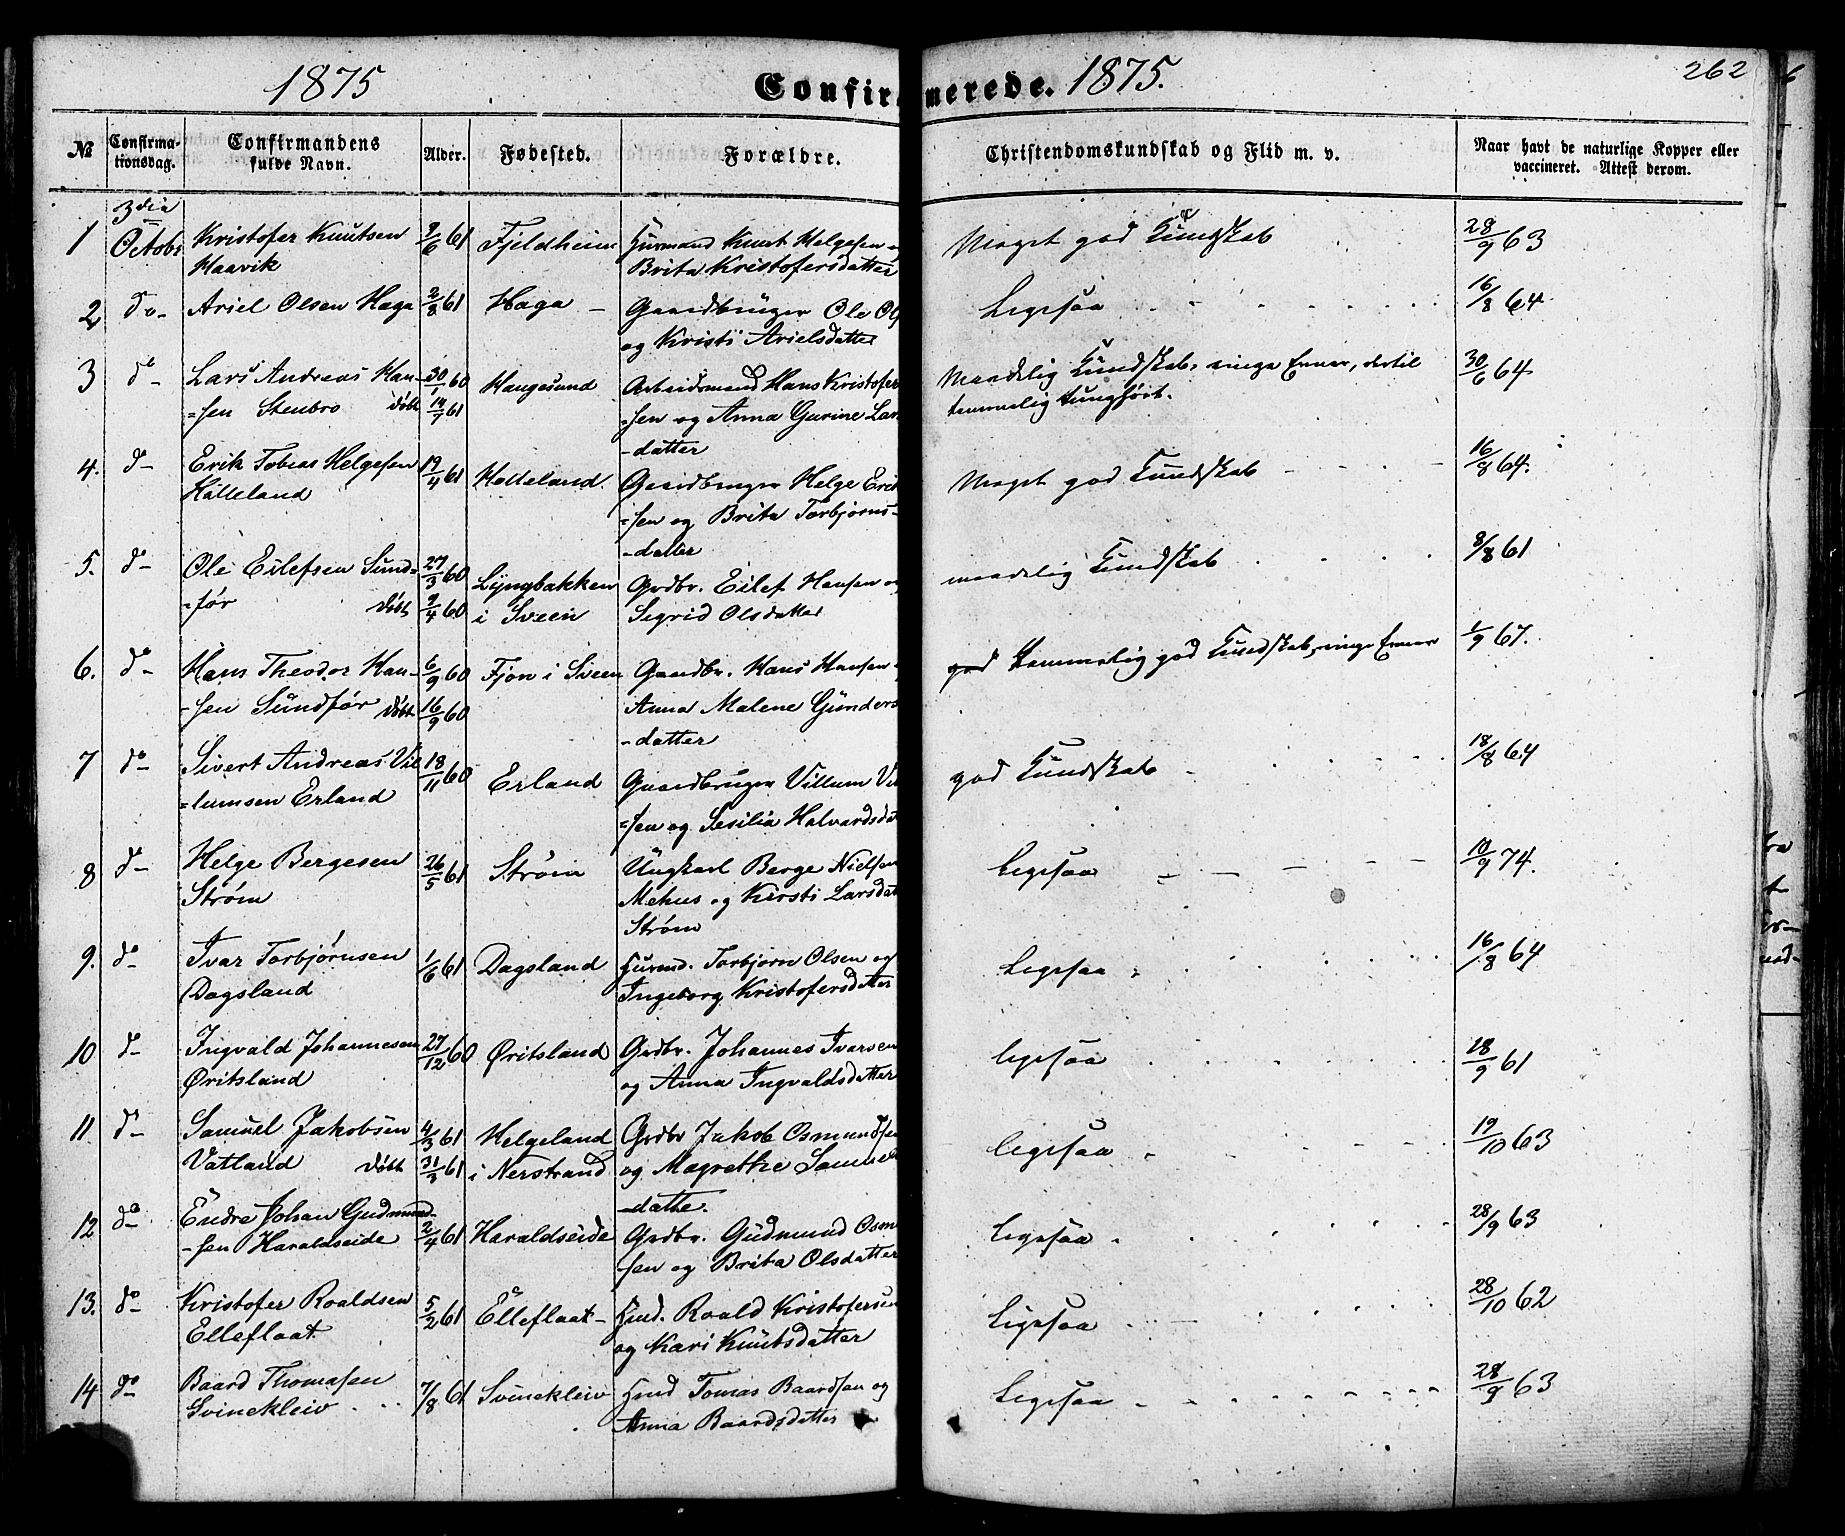 1875 Confirmerede. 1875. 262
№ Confirma-tionsdag. Confirmandens fulde Navn. Alder. Fødested. Forældre. Christendomskundskab og Flid m. v. Naar havt de naturlige Kopper eller vaccineret. Attest derom.
3die
1 Octobr Kristofer Knutsen 9/6 61 Fjeldheim Huusmand Knut Helgesen og Meget god Kundskab 28/9 63
Haavik Brita Kristofersdatter
2 do- Ariel Olsen Haga 2/8 61 Haga - Gaardbruger Ole Ols Ligesaa 16/8 64
og Kristi Arielsdatter
3 do- Lars Andreas Han- 30/ 60 Haugesund Arbeidsmand Hans Kristofer Maadelig Kundskab, ringe Evner, dertil 30/6 64
=sen Stenbro døbt 14/7 61 =sen og Anna Gurine Lars temmelig tunghørt.
-datter
4. do- Erik Tobias Helgesen 19/4 61 Kalleland. Gaardbruger Helge Erik Meget god Kundskab 16/8 64.
Kalleland =sen og Brita Torbjørns-
-datter
5. do- Ole Eilefsen Sund= 27/3 60 Lyngbakken Grdbr. Eilef Hansen og maadelig Kundskab 8/8 61
=før døbt 9/4 60 i Sveen Sigrid Olsdatter
6. do- Hans Theodor Han- 6/9 60 Fjon i Sveen Gaardbr. Hans Hansen og god temmelig god Kundskab, ringe Evner 1/9 67.
-sen Sundfør døbt 16/9 60 Anna Malene Gunders
-datter
7 do- Sivert Andreas Vil 18/11 60 Erland Gaardbruger Villum Vil god Kundskab 18/8 64
=lumsen Erland =sen og Sesilia Halvardsdat
8 do- Helge Bergesen 26/5 61 Strøm Ungkarl Berge Nielsen Ligesaa 10/9 74.
Strøm Mehus og Kirsti Larsdat
Strøm
9. do- Ivar Torbjørnsen 1/6 61 Dagsland Husmd. Torbjørn Olsen og Ligesaa 16/8 64
Dagsland Ingeborg Kristofersdatter
10 do- Ingvald Johannesen 27/12 60 Øritsland Grdbr. Johannes Ivarsen ligesaa 18/9 61
Øritsland og Anna Ingvaldsdatter
11. do- Samuel Jakobsen 4/3 61 Helgeland Grdbr Jakob Osmundsen ligesaa 19/10 63
Vatland døbt 31/3 61 i Nerstrand og Magrethe Samuels
-datte.
12 do- Endre Johan Gudmund- 2/4 61 Haraldseide Grdbr. Gudmund Osm Ligesaa 28/9 63
-sen Haraldseide sen og Brita Olsdatter
13. do- Kristofer Roaldsen 5/2 61 Elleflaat- Hmd. Roald Kristofersen Ligesaa 28/10 62
Elleflaat og Kari Knutsdatter
14 do- Baard Thomasen 7/8 61 Svinekleiv Hmd Tomas Baardsen og Ligesaa 28/9 63
Svinekleiv Anna Baardsdatter